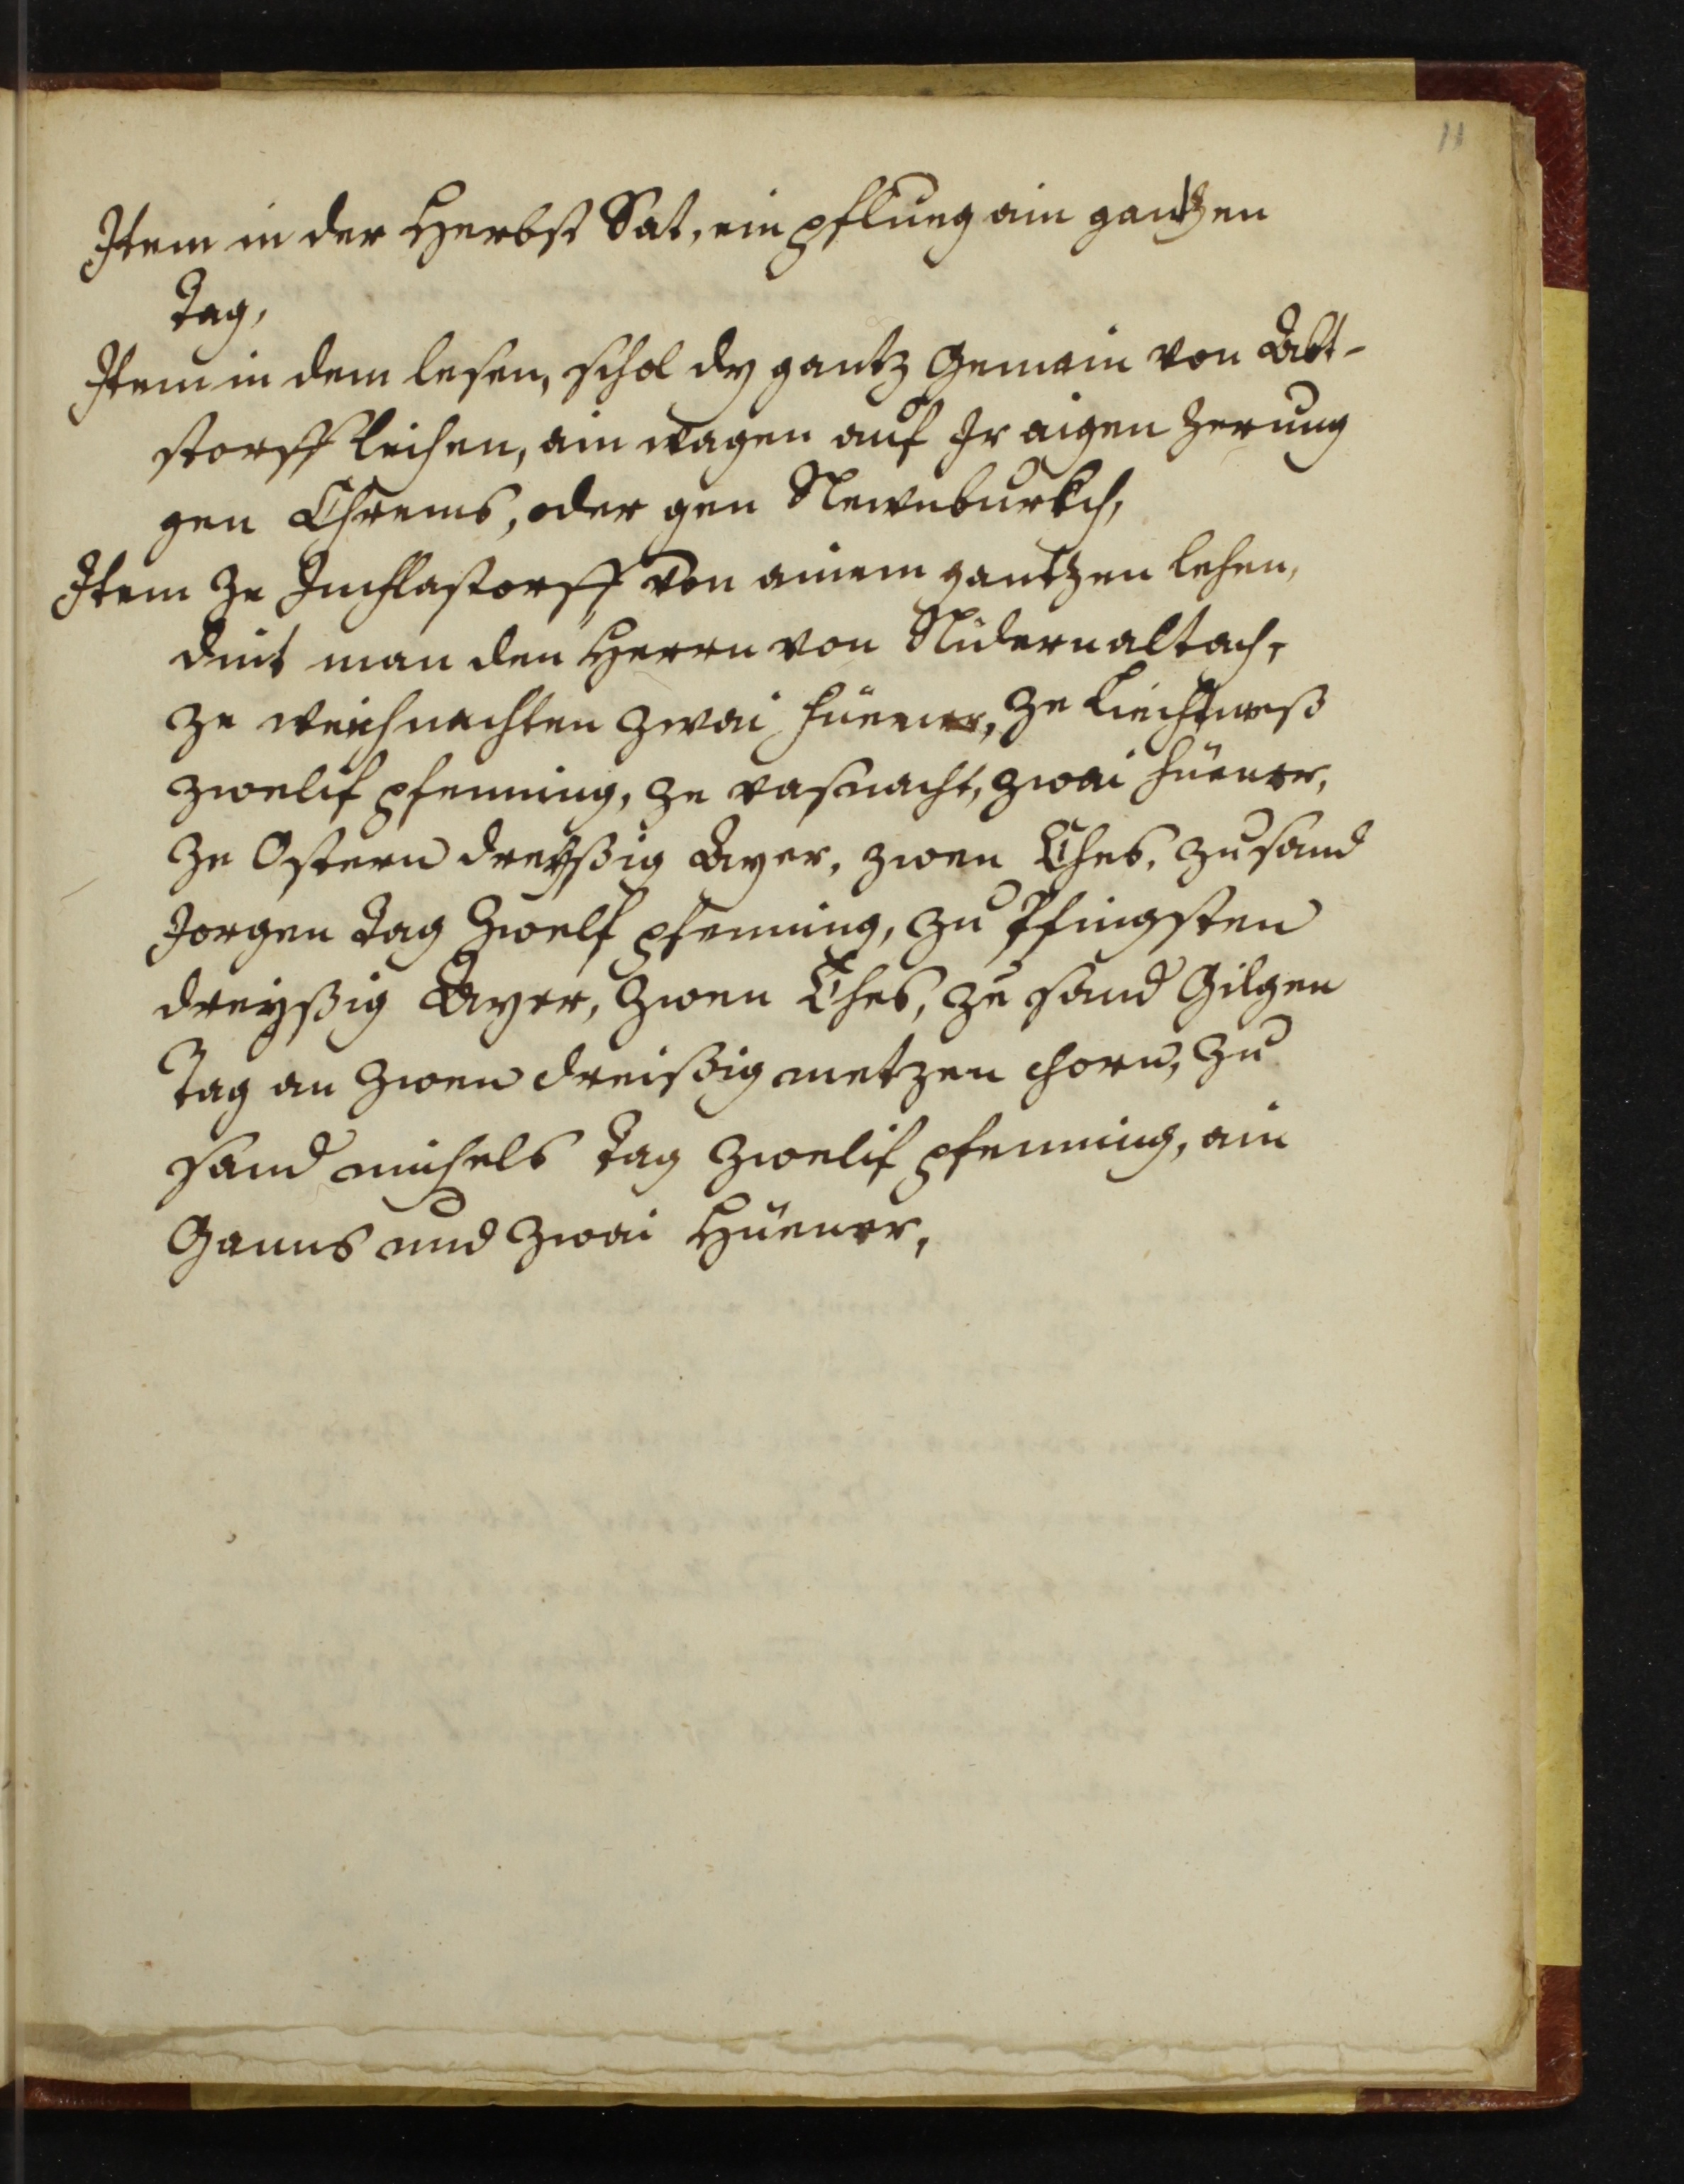 11
Item in der Herbst Sat, ein pflueg ain gantzen
Tag,
Item in dem lesen, schol dy gantz Gemain von Abt-
storff leihen, ain wagen auf Ir aigen Zerung
gen Chrems, oder gen Newnburkch,
Item Ze von ainem gantzen lehen,
dint man den Herrn von Nidernaltach,
Ze weichnachten Zwai hüener, Ze Liechtmeß
Zwelif pfenning, Ze vasnacht, Zwai hüener,
Ze Ostern dreyßig Ayer, Zwen Ches, Zu sand
Jorgen Tag Zwelf pfenning, Zu Pfingsten
dreyßig Ayer, Zwen Ches, Ze sand Gilgen
Tag an Zwen dreißig metzen chorn, Zu
sand michels Tag Zwelif pfenning, ain
Ganns und Zwai Hüener,